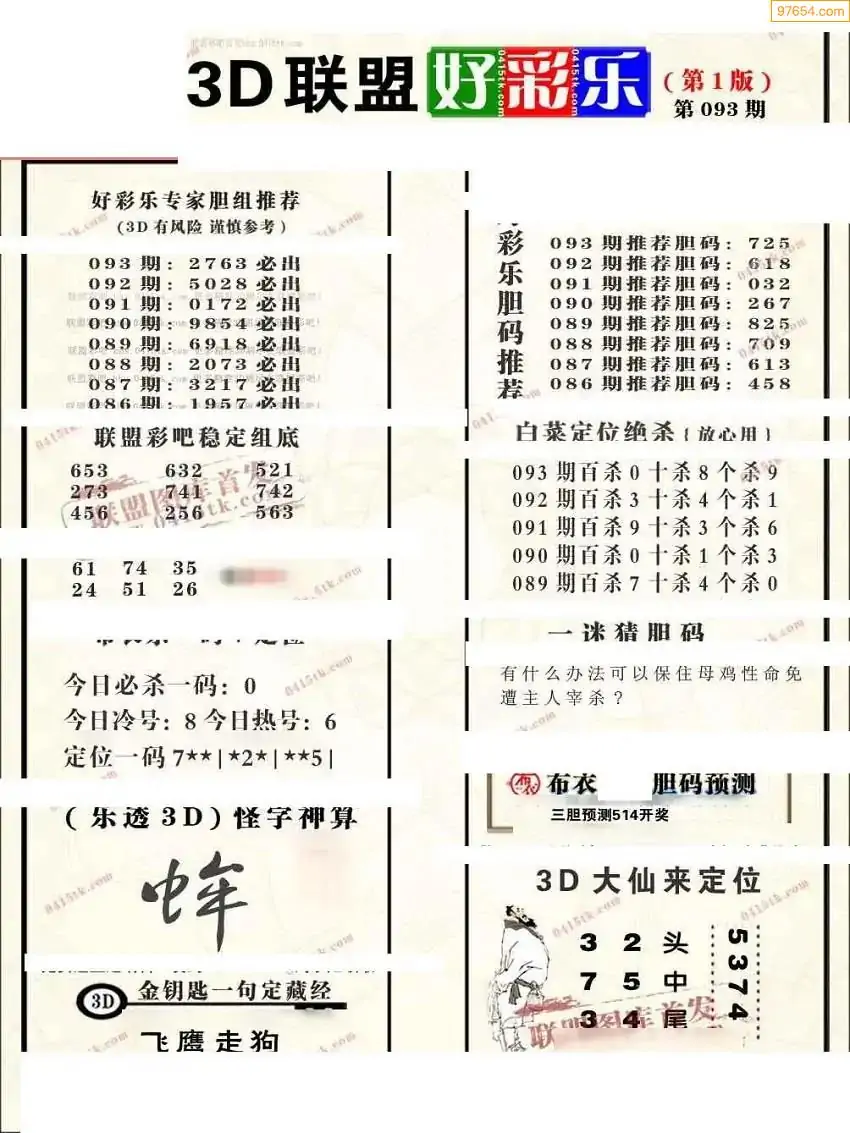 97654.com
3D联盟好彩乐
(第1版)
第093期
好彩乐专家胆组推荐
(3D有风险 谨慎参考)
093期: 2763必出
092期: 5028必出
091期: 0172必出
090期: 9854必出
089期: 6918必出
088期: 2073必出
087期: 3217必出
086期: 1957必出
联盟彩吧稳定组底
653 632 521
273 741 742
456 256 563
联盟图库首发
0415tk.com
61 74 35
24 51 26
今日必杀一码: 0
今日冷号: 8 今日热号: 6
定位一码7**|*2*|**5|
(乐透3D)怪字神算
3D 金钥匙一句定藏经
飞鹰走狗
彩乐胆码推荐
093期推荐胆码: 725
092期推荐胆码: 618
091期推荐胆码: 032
090期推荐胆码: 267
089期推荐胆码: 825
088期推荐胆码: 709
087期推荐胆码: 613
086期推荐胆码: 458
白菜定位绝杀{放心用}
093期百杀0十杀8个杀9
092期百杀3十杀4个杀1
091期百杀9十杀3杀6
090期百杀0十杀1杀3
089期百杀7十杀4个杀0
一迷猜胆码
有什么办法可以保住母鸡性命免
遭主人宰杀?
布衣 胆码预测
三胆预测514开奖
3D大仙来定位
3 2 头
7 5 中
3 4 尾
5374
联盟图库首发